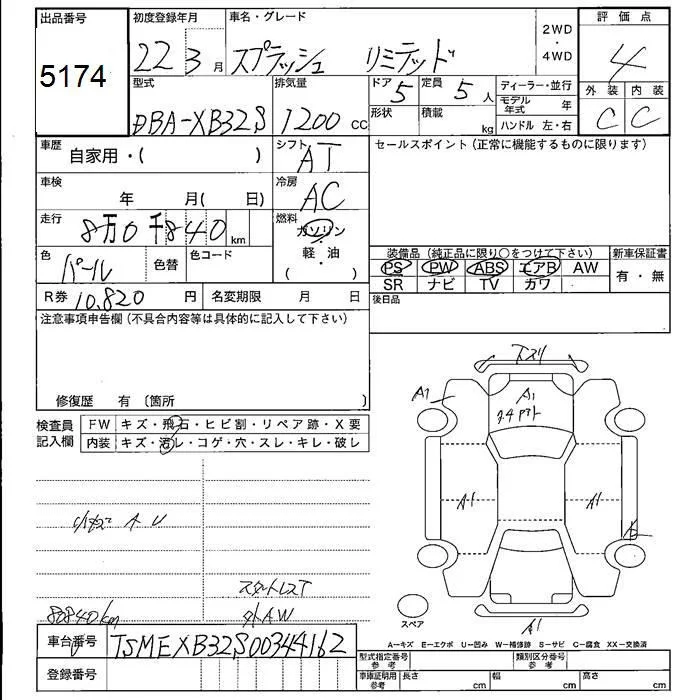 出品番号 5174
初度登録年月 22 3月
車名・グレード スプラッシュ リミテッド
2WD・4WD
評価点 4
外装 C 内装 C
型式 DBA-XB32S
排気量 1200 CC
ドア 5 形状
定員 5人 積載 kg
ディーラー・並行
モデル年式 年
ハンドル 左・右
車歴 自家用・( )
シフト AT
セールスポイント(正常に機能するものに限ります)
車検 年 月( 日)
冷房 AC
走行 8万0千840km
燃料 ガソリン・軽・油 ( )
色 パール 色替 色コード
装備品(純正品に限り○をつけて下さい)
PS PW ABS エアB AW
SR ナビ TV カワ
新車保証書 有・無
R券 10,820円 名変期限 月 日
後日品
注意事項申告欄(不具合内容等は具体的に記入して下さい)
修復歴 有〔箇所 〕
検査員記入欄
FW キズ・飛石・ヒビ割・リペア跡・X要
内装 キズ・汚レ・コゲ・穴・スレ・キレ・破レ
A1
A1
A1
A1
A1
スタートレスT
外AW
80840km
スペア
A-キズ E-エクボ U-凹み W-補修跡 S-サビ C-腐食 XX-交換済
車台番号 TSMEXB32S00344162
登録番号
型式指定番号 参考
類別区分番号 参考
車庫証明用 参考
長さ cm 幅 cm 高さ cm